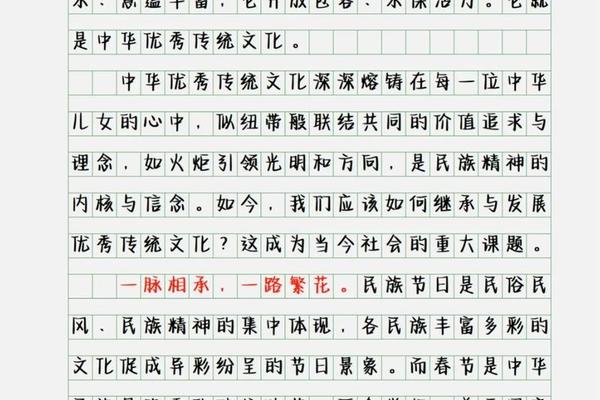 是中华优秀传统文化。
中华优秀传统文化深深熔铸在每一位中华
儿女的心中，似纽带般联结共同的价值追求与
理念，如火炬引领光明和方向，是民族精神的
内核与信念。如今，我们应该如何继承与发展
优秀传统文化？这成为当今社会的重大课题。
一脉相承，一路繁花。民族节日是民俗民
风、民族精神的集中体现，各民族丰富多彩的
文化促成异彩纷呈的节日景象。而春节是中华